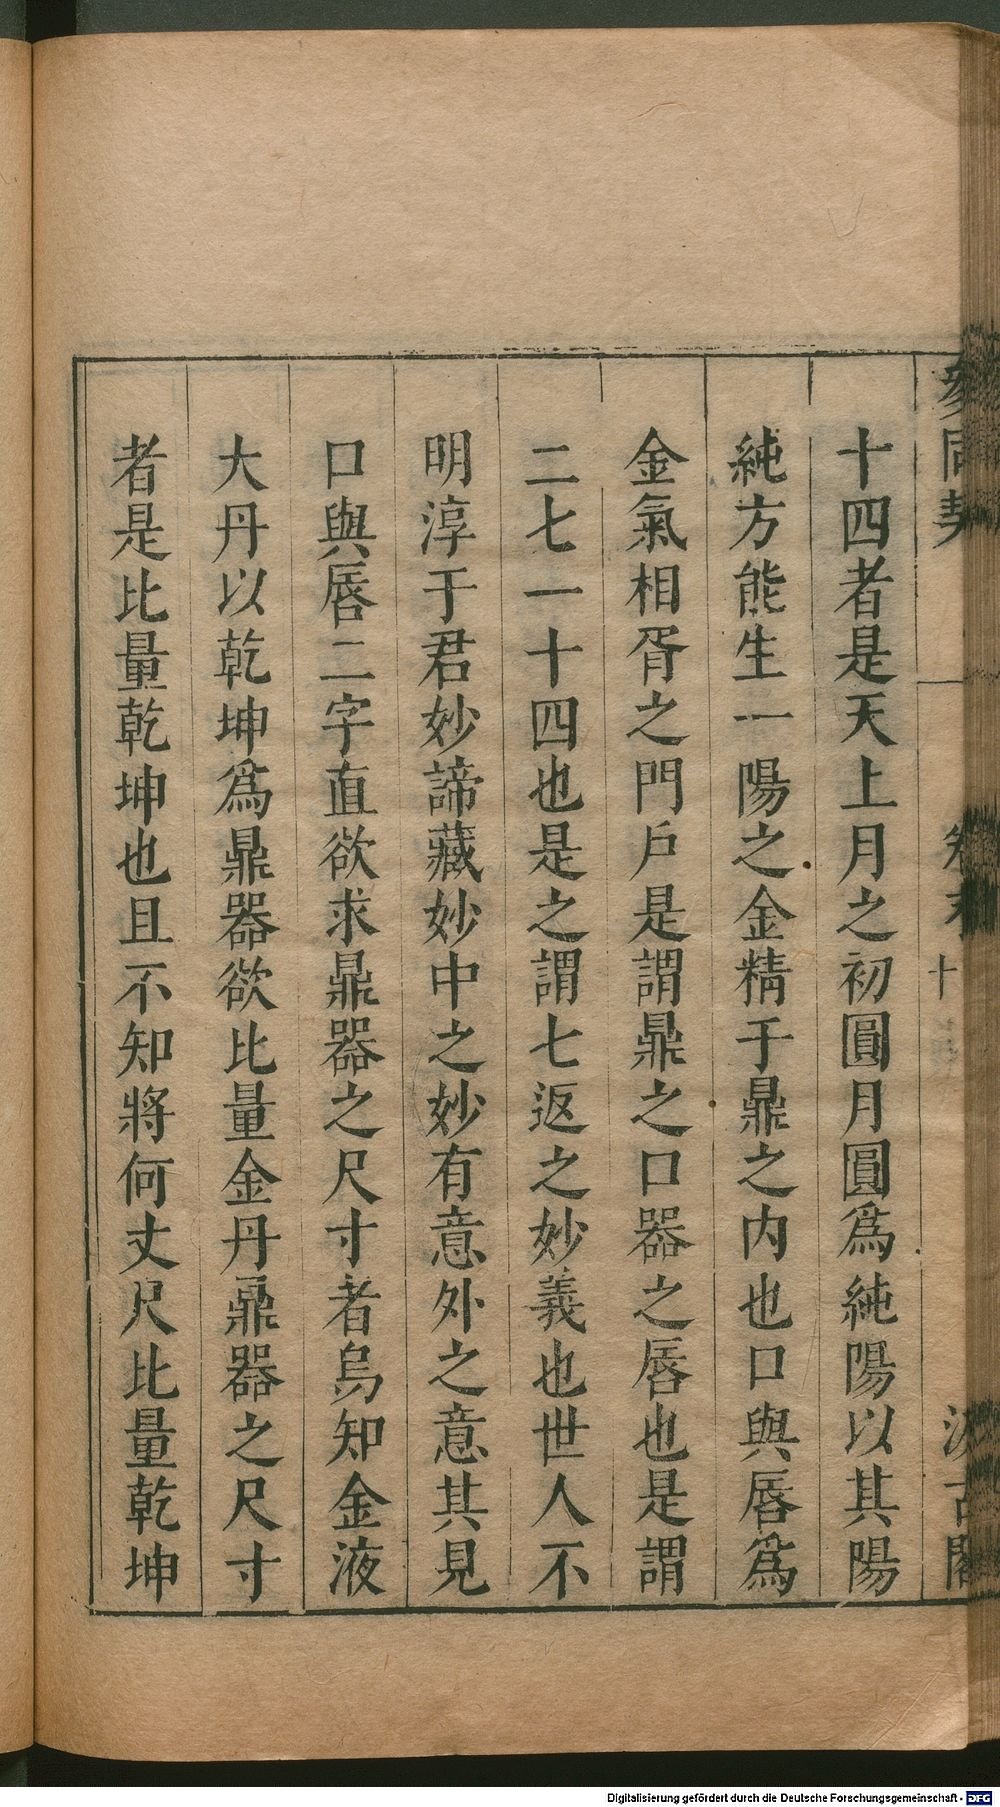 參同契 卷末 十 汲古閣
十四者是天上月之初圓月圓爲純陽以其陽
純方能生一陽之金精于鼎之内也口與唇爲
金氣相胥之門戶是謂鼎之口器之唇也是謂
二七一十四也是之謂七返之妙義也世人不
明淳于君妙諦藏妙中之妙有意外之意其見
口與唇二字直欲求鼎器之尺寸者烏知金液
大丹以乾坤爲鼎器欲比量金丹鼎器之尺寸
者是比量乾坤也且不知將何丈尺比量乾坤
Digitalisierung gefördert durch die Deutsche Forschungsgemeinschaft - DFG